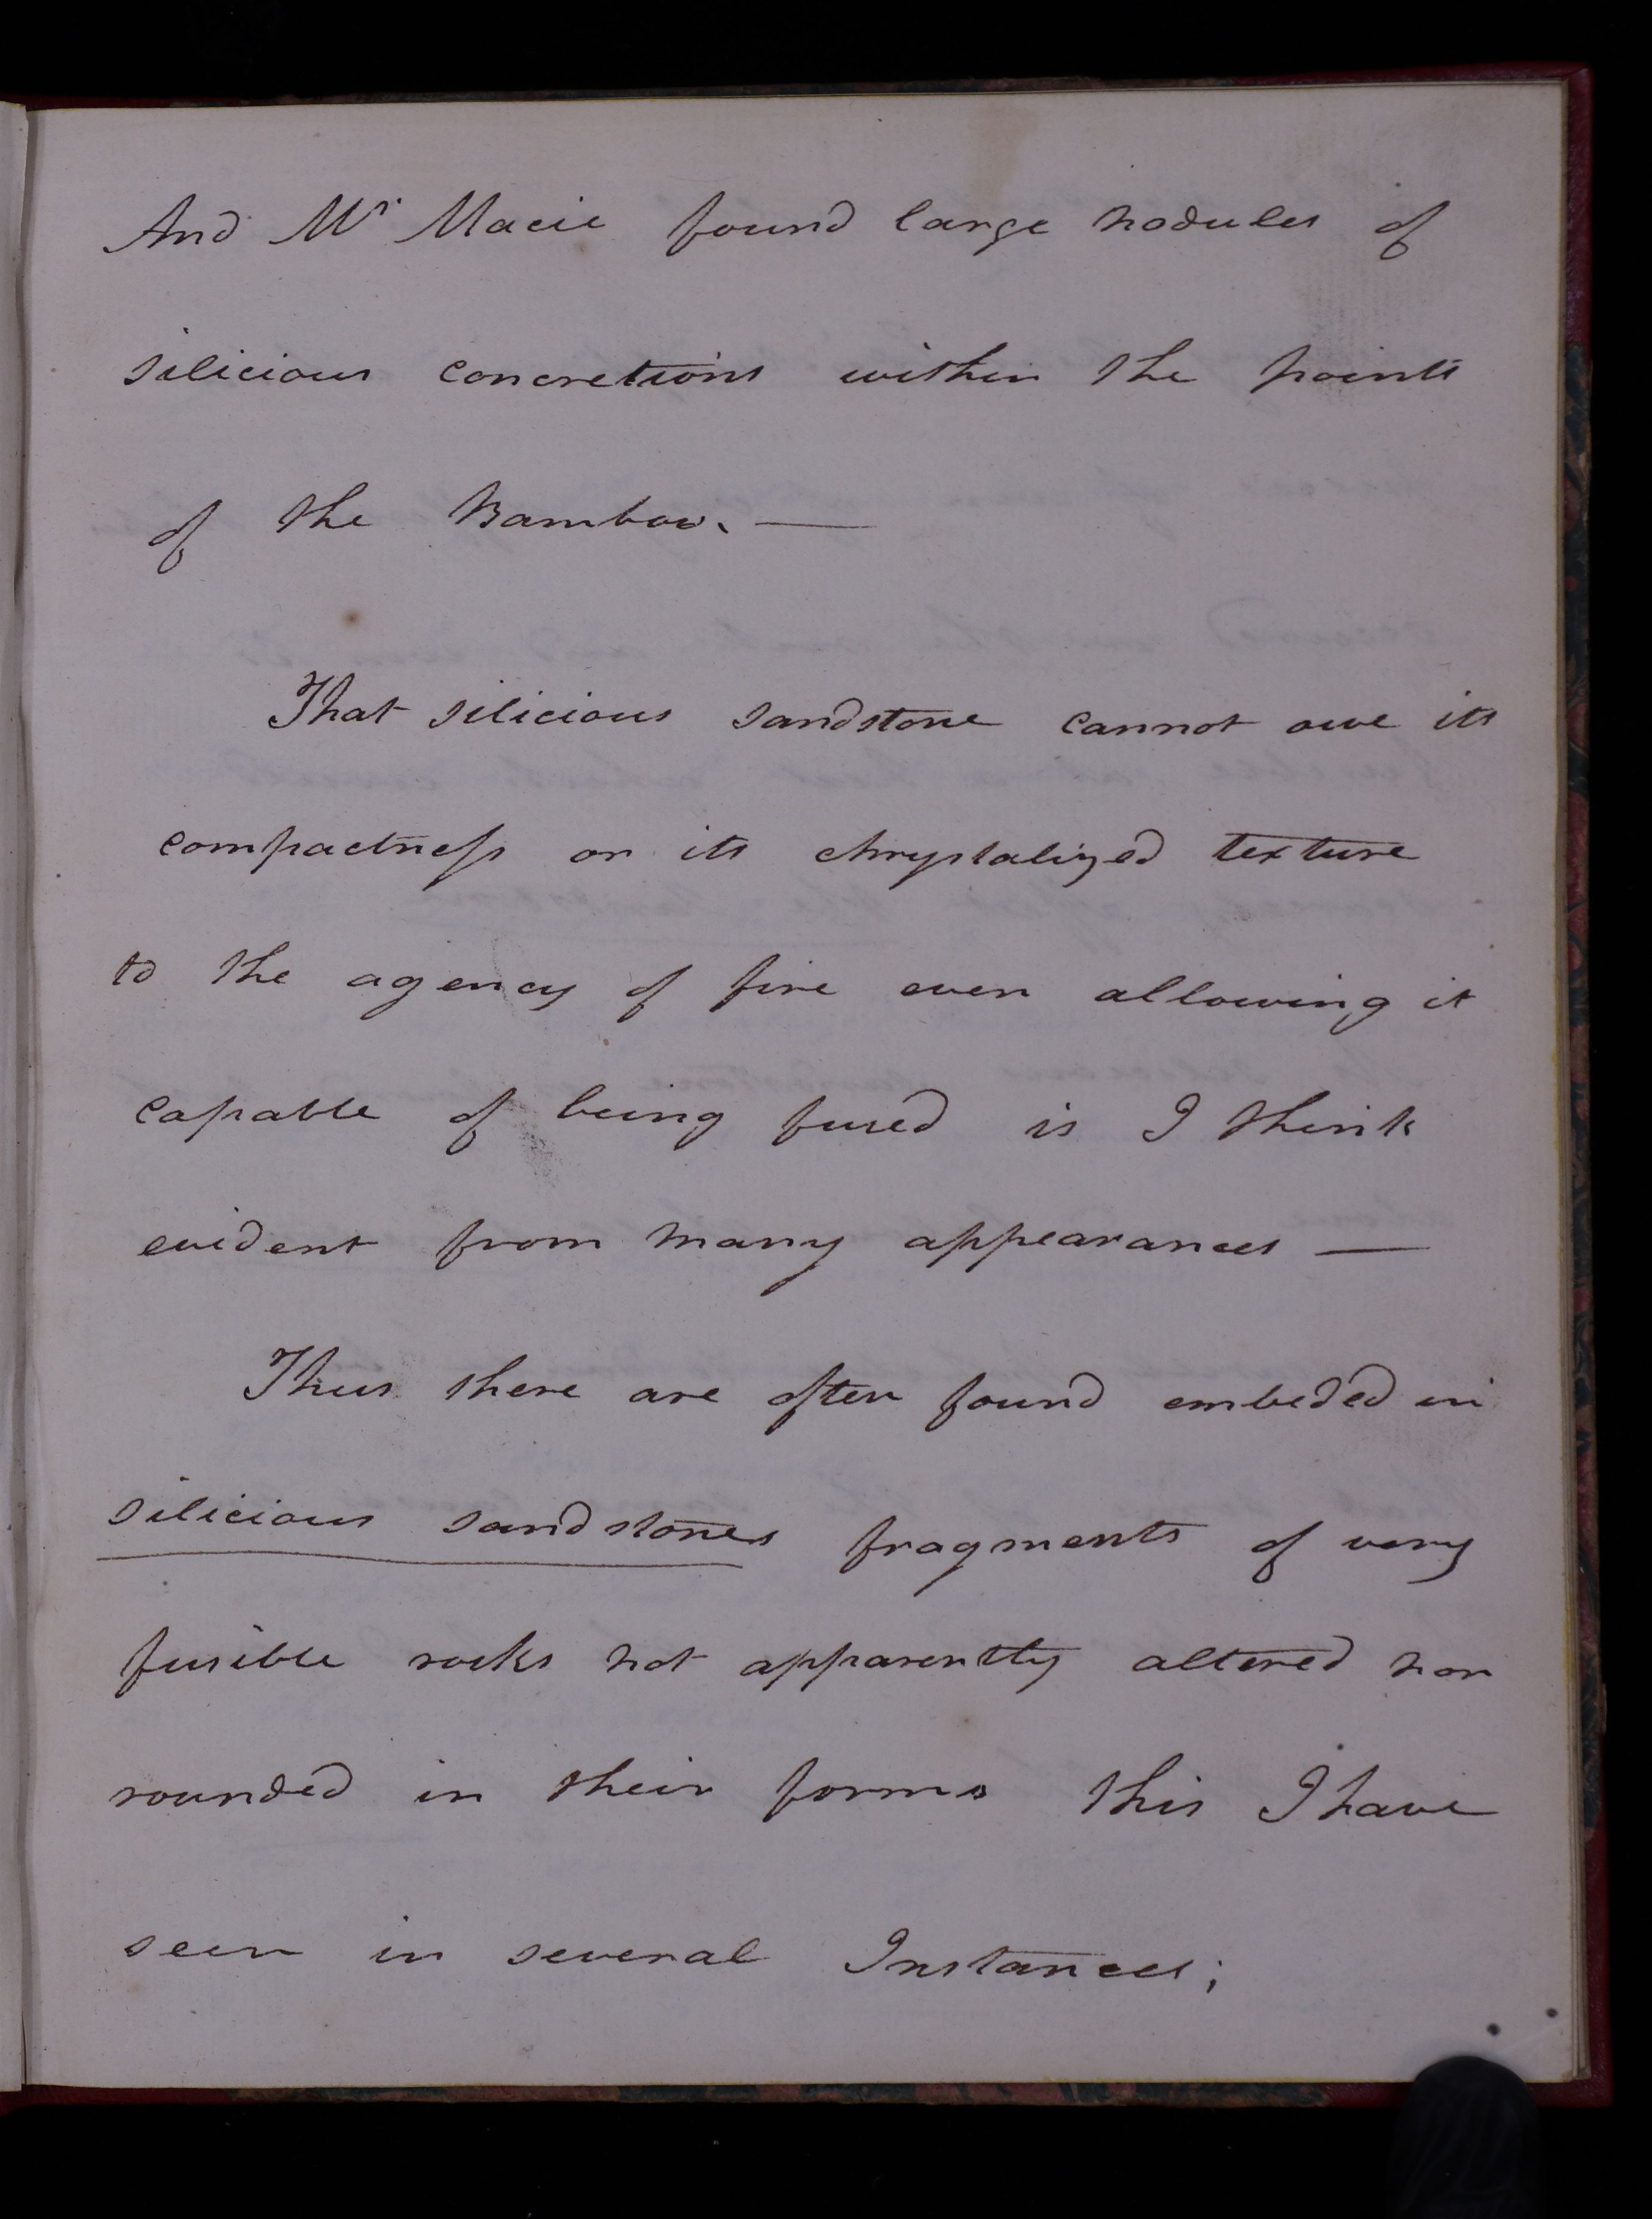 And Mr Macie found large nodules of
silicious concretions within the points
of the Bamboo. —
That silicious sandstone cannot owe its
compactness or its chrystalized texture
to the agency of fire even allowing it
capable of being fused is I think
evident from many appearances —
Thus there are often found embeded in
silicious sandstones fragments of very
fusible rocks not apparently altered nor
rounded in their forms this I have
seen in several Instances;